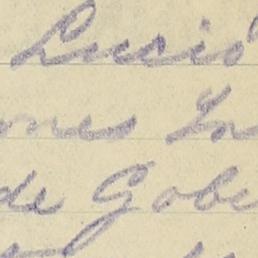 Lucio
ones In
de Gobe